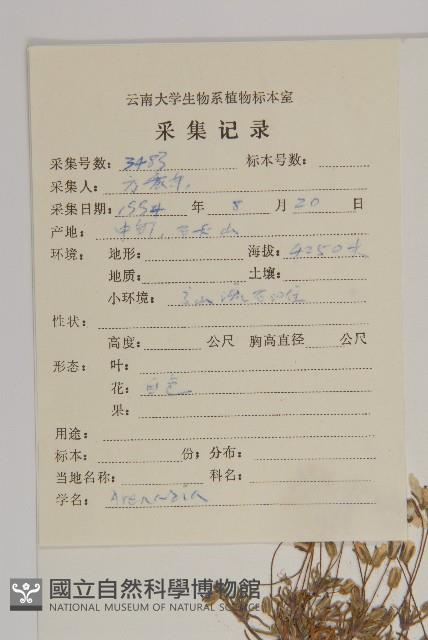 云南大学生物系植物标本室
采集记录
采集号数: 3483 标本号数:
采集人: 方
采集日期: 1994 年 8 月 20 日
产地: 中甸, 山
环境: 地形: 海拔: 4250
地质: 土壤:
小环境: 高山流石
性状:
高度: 公尺 胸高直径 公尺
形态: 叶:
花: 白色
果:
用途:
标本: 份; 分布:
当地名称: 科名:
学名: Arenaria
國立自然科學博物館
NATIONAL MUSEUM OF NATURAL SCIENCE